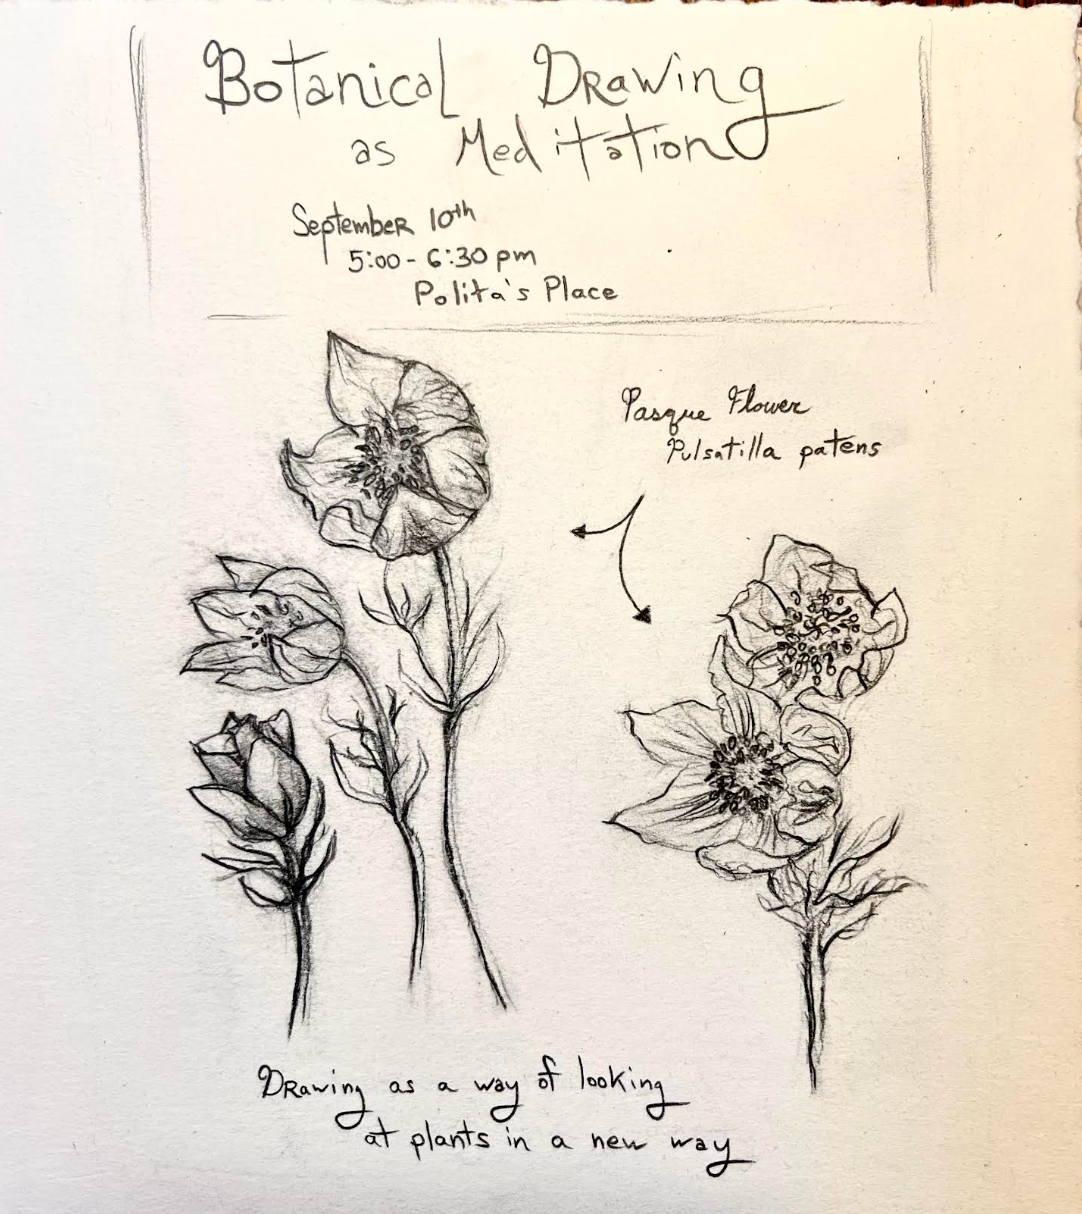 Botanical Drawing
as Meditation
September 10th
5:00 - 6:30 pm
Polita's Place
Pasque Flower
Pulsatilla patens
Drawing as a way of looking
at plants in a new way